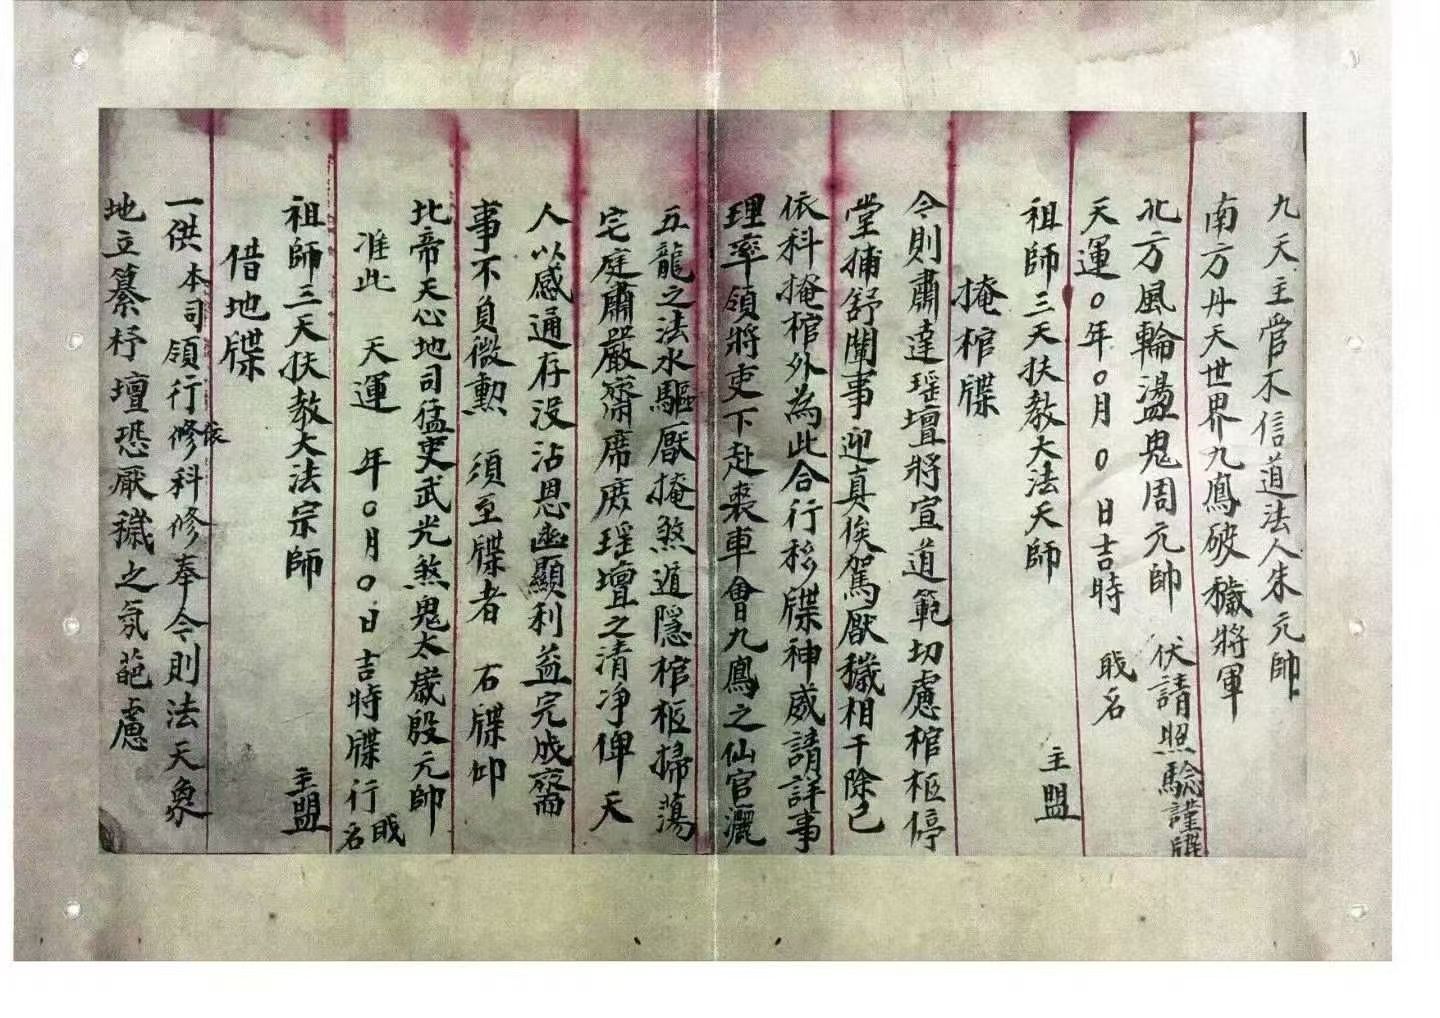 九天主管不信道法人朱元帥
南方丹天世界九鳳破穢將軍
北方風輪盪鬼周元帥 伏請照驗謹牒
天運〇年〇月〇日吉時 戝名
祖師三天扶教大法天師 主盟
掩棺牒
令則肅達瑶壇將宣道範切慮棺柩停
堂捕舒闈事迎真俟駕厭穢相干除已
依科掩棺外為此合行移牒神威請詳事
理率領將吏下赴丧車會九鳳之仙官灑
五龍之法水驅厭掩煞遁隱棺柩掃蕩
宅庭肅嚴齋席庻瑶壇之清净俾天
人以感通存没沾恩幽顯利益完成齋
事不負微勲 須至牒者 右牒仰
北帝天心地司猛吏武光煞鬼太歲殷元帥
准此 天運 年〇月〇日吉時牒行 戝名
祖師三天扶教大法宗師 主盟
借地牒
一供本司領行修科修奉令則法天象
依
地立纂杼壇恐厭穢之氛葩慮